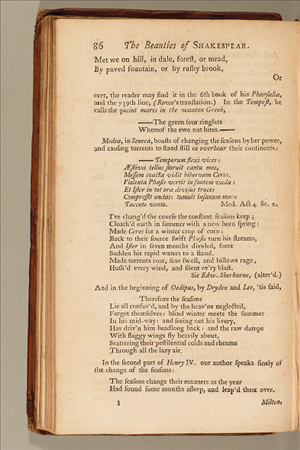 86 The Beauties of SHAKESPEAR.
Met we on hill, in dale, forest, or mead,
By paved fountain, or by rushy brook,
Or
ever, the reader may find it in the 6th book of his Pharsalia,
and the 759th line, (Rowe's translation.) In the Tempest, he
calls the quaint mazes in the wanton Green,
——The green sour ringlets
Whereof the ewe not bites.——
Medea, in Seneca, boasts of changing the seasons by her power,
and causing torrents to stand still or overbear their continents:
——Temporum flexi vices:
Æstiva tellus floruit cantu meo,
Messem coacta vidit hibernam Ceres.
Violenta Phasis vertit in fontem vada:
Et Ister in tot ora divisus truces
Compressit undas: tumuit insanum mare
Tacente vento. Med. Act 4. Sc. 2.
I've chang'd the course the constant seasons keep;
Cloath'd earth in summer with a new born spring:
Made Ceres for a winter crop of corn:
Back to their source swift Phasis turn his streams,
And Ister in seven mouths divided, force
Sudden his rapid waters to a stand.
Made torrents roar, seas swell, and billows rage,
Hush'd every wind, and silent ev'ry blast.
Sir Edw. Sherburne, (alter'd.)
And in the beginning of Oedipus, by Dryden and Lee, 'tis said,
Therefore the seasons
Lie all confus'd, and by the heav'ns neglected,
Forget themselves: blind winter meets the summer
In his mid-way: and seeing not his livery,
Has driv'n him headlong back: and the raw damps
With flaggy wings fly heavily about,
Scattering their pestilential colds and rheums
Through all the lazy air.
In the second part of Henry IV. our author speaks finely of
the change of the seasons:
The seasons change their manners as the year
Had found some months asleep, and leap'd them over.
Milton,